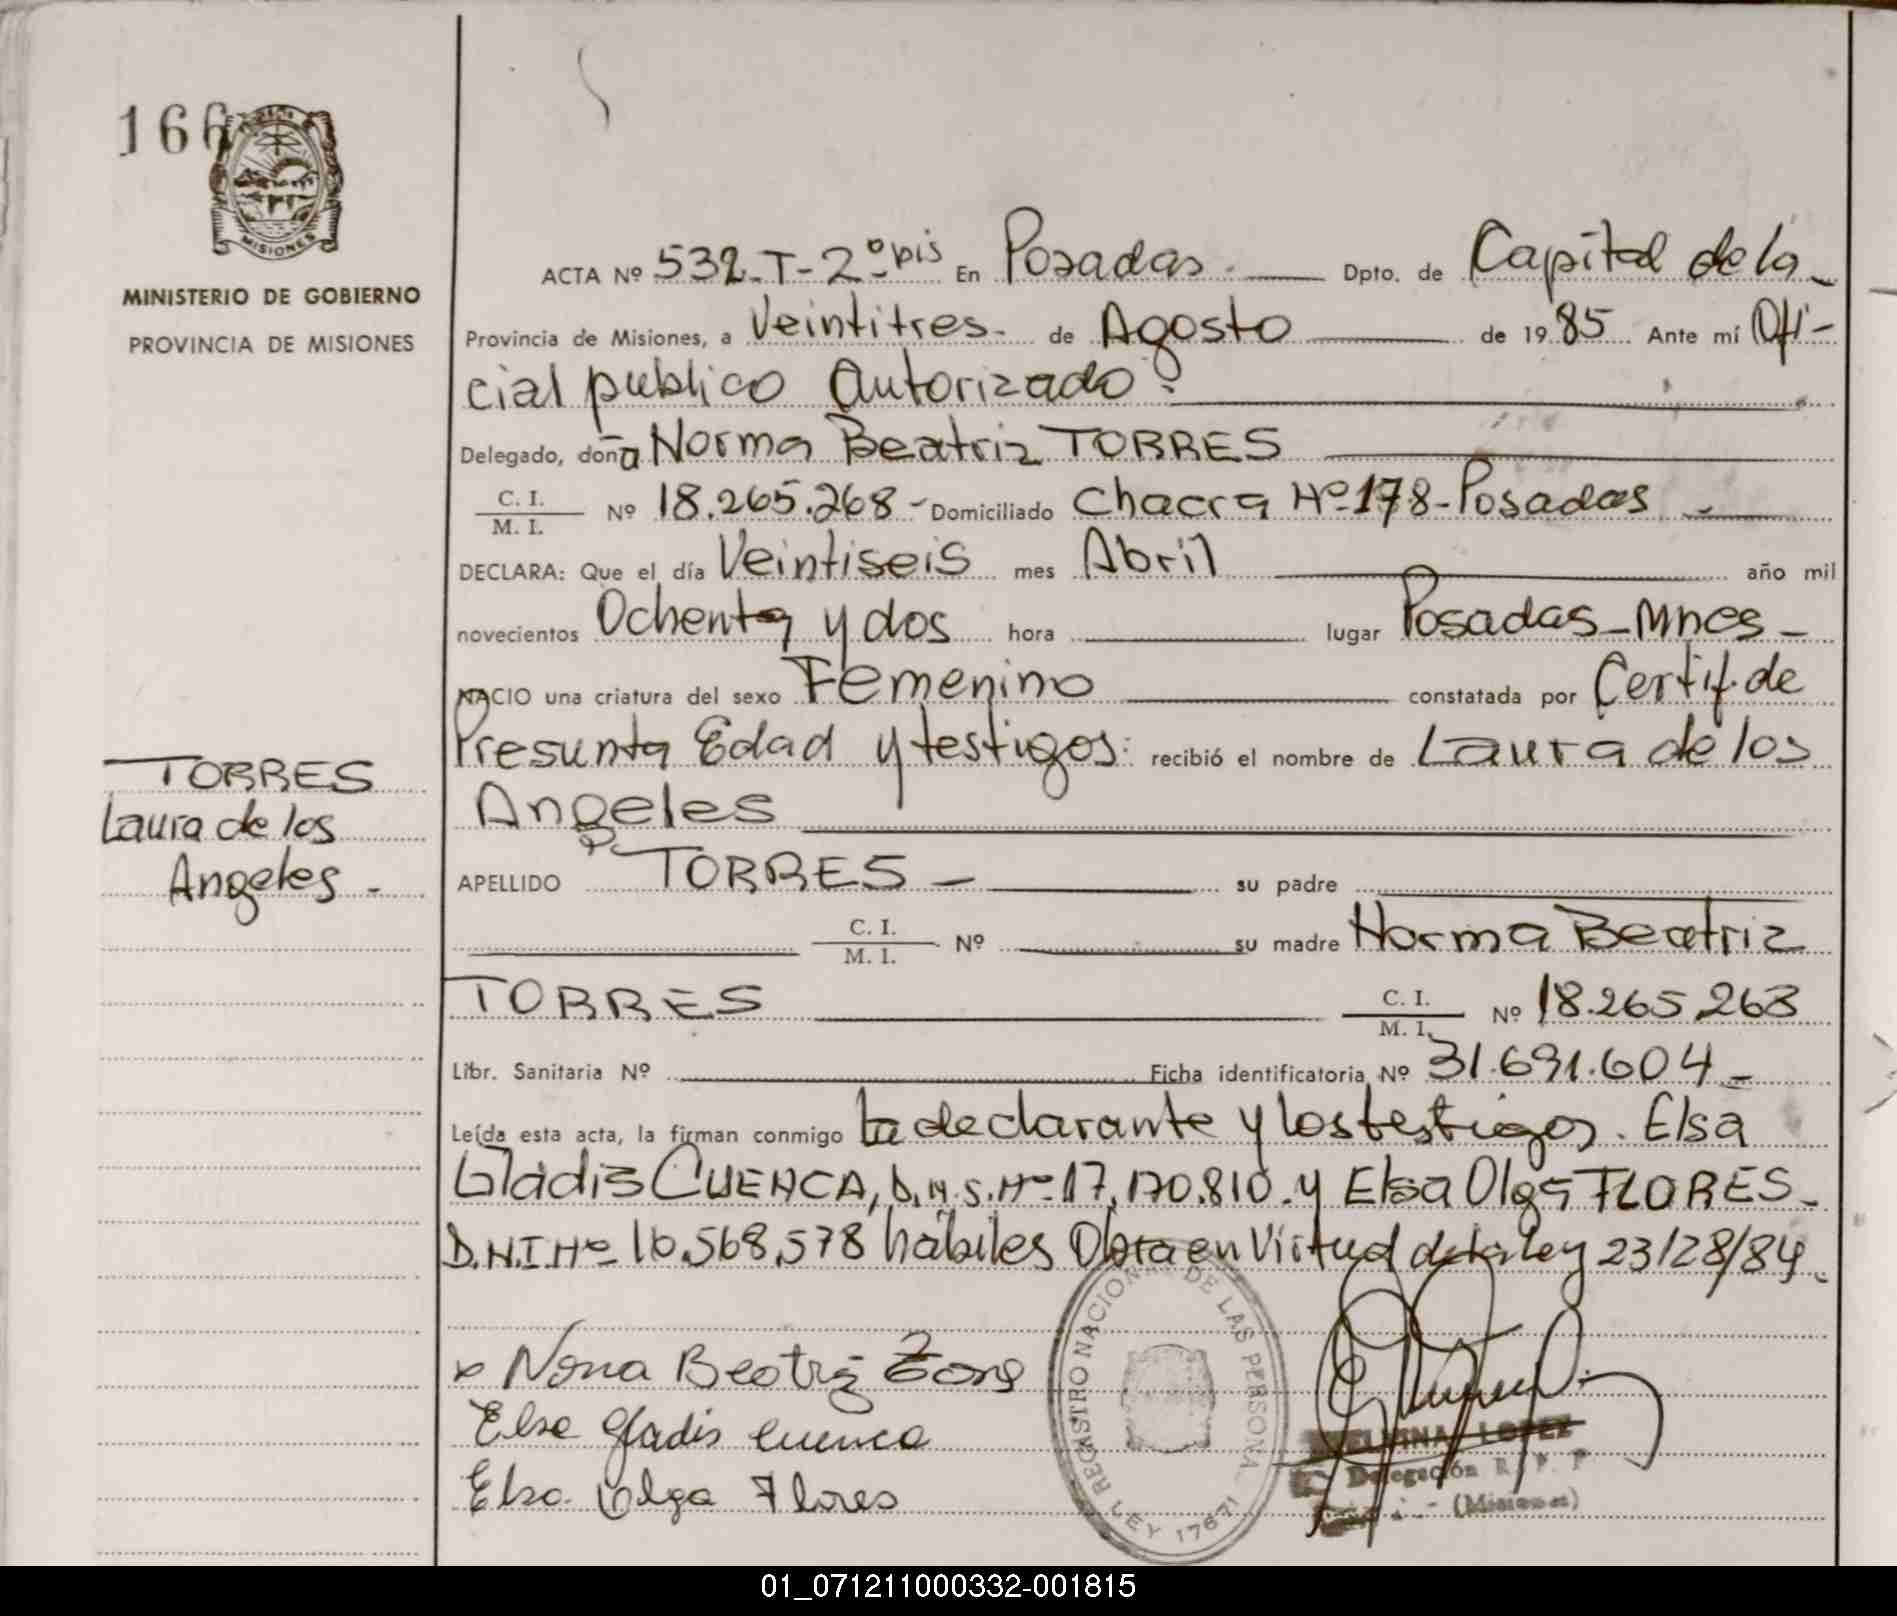 166
MISIONES
MINISTERIO DE GOBIERNO
PROVINCIA DE MISIONES
TORRES
Laura de los
Angeles -
ACTA Nº 532-T-2º bis En Posadas. Dpto. de Capital de la
Provincia de Misiones, a Veintitres- de Agosto de 1985 Ante mí Ofi-
cial publico Autorizado:
Delegado, doña Norma Beatriz TORRES
C. I.
M. I. Nº 18.265.268 - Domiciliado Chacra Nº 178-Posadas -
DECLARA: Que el día Veintiseis mes Abril año mil
novecientos Ochenta y dos hora lugar Posadas-Mnes-
NACIO una criatura del sexo Femenino constatada por Certif. de
Presunta Edad y testigos: recibió el nombre de Laura de los
Angeles
APELLIDO TORRES - su padre
C. I.
M. I. Nº su madre Norma Beatriz
TORRES C. I.
M. I. Nº 18.265.268
Libr. Sanitaria Nº Ficha identificatoria Nº 31.691.604-
Leída esta acta, la firman conmigo La declarante y los testigos. Elsa
Gladis CUENCA, Nº 17.170.810. y Elsa Olga FLORES-
D.N.I Nº 16.568.578 hábiles en Virtud de la ley 23128/84.
x Norma Beatriz Torres
Elsa Gladis Cuenca
Elsa Olga Flores
REGISTRO NACIONAL DE LAS PERSONAS
LEY 17671
LOPEZ
Delegación R. P. P
(Misiones)
01_071211000332-001815